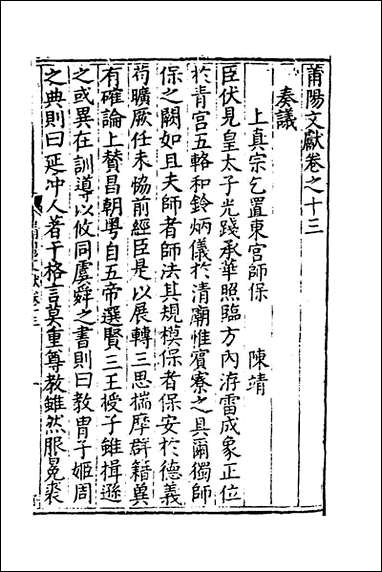 莆陽文獻卷之十三
奏議
上真宗乞置東宮師保　陳靖
臣伏見皇太子光踐承華照臨方內洊雷成象正位
於青宮五輅和鈴炳儀於清廟惟賓寮之具爾獨師
保之闕如且夫師者師法其規模保者保安於德義
茍曠厥任未協前經臣是以展轉三思揣摩群籍奠
有確論上賛昌朝粤自五帝選賢三王授子雖揖遜
之或異在訓導以攸同虞舜之書則曰教胄子姬周
之典則曰延冲人著于格言莫重尊教雖然服冕裘